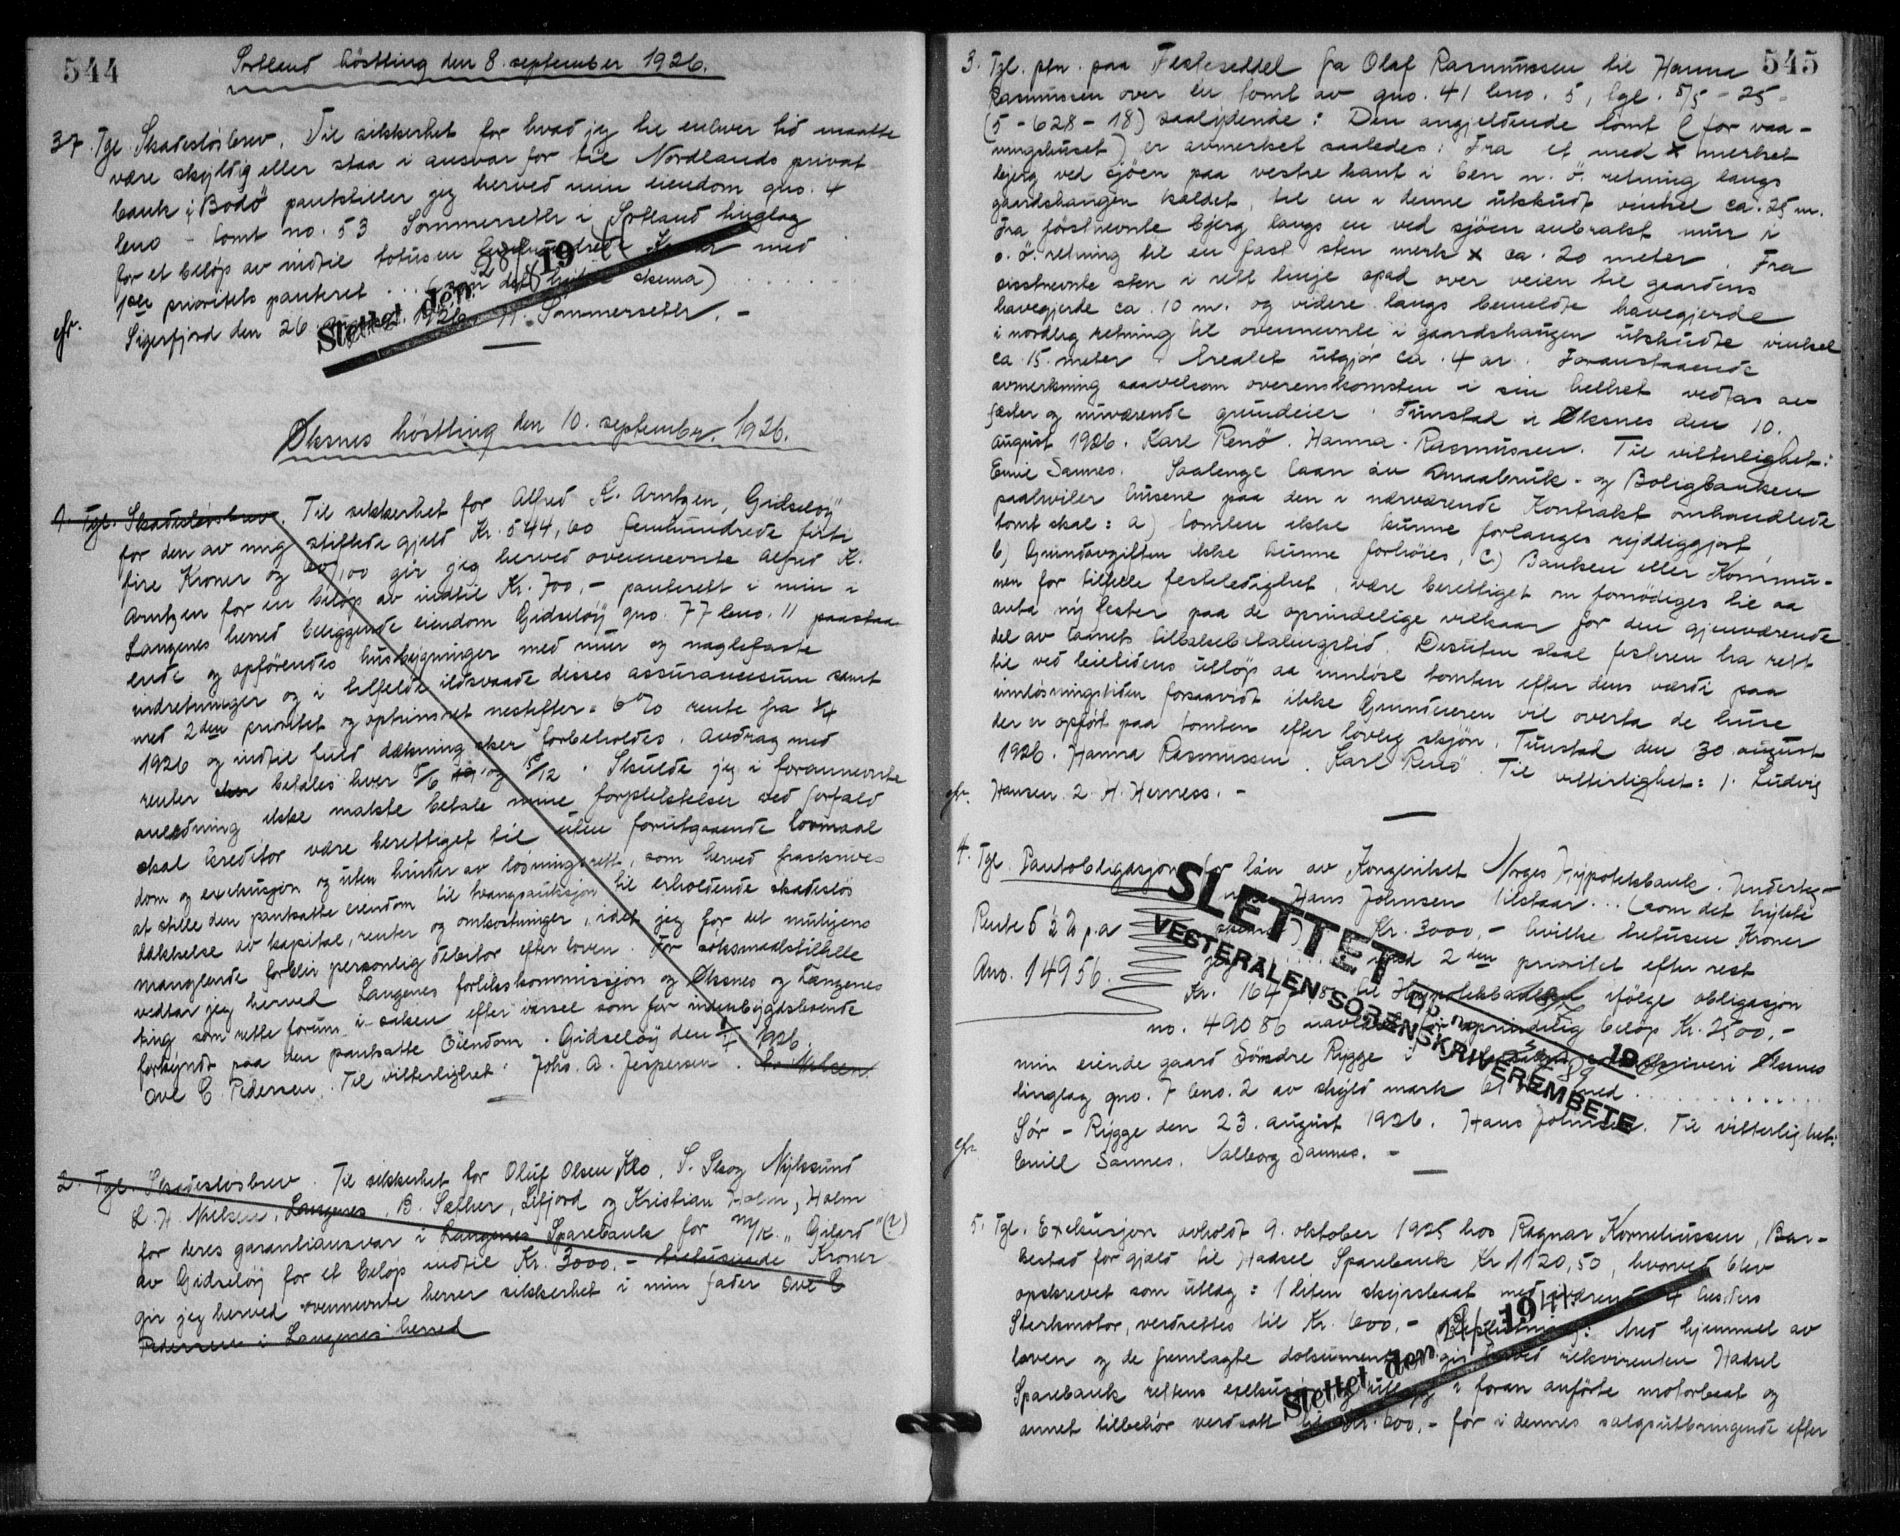 544
Sortland höstting den 8. september 1926.
37. Tgl. Skadeslösbrev. Til sikkerhet for hvad jeg til enhver tid maatte
være skyldig eller staa i ansvar for til Nordlands privat
bank i Bodö pantstiller jeg herved min eiendom gno. 4
bno - tomt no. 53 Sommersetli i Sortland tinglag
for et belöp av indtil totusen femhundrede Kroner med
1ste prioritets panteret ... (som det skema) ......
efr. Sigerfjord den 26. august 1926. Sommersetli. -
Slettet den 19
Øksnes hösttling den 10. september. 1926.
1. Tgl. Skadeslösbrev. Til sikkerhet for Alfred K. Arntzen, Gidslöÿ
for den av mig stiftede gjeld Kr. 544,60 femhundrede förti
fire Kroner og 60/100 gir jeg herved ovennevnte Alfred K.
Arntzen for en belöp av indtil Kr. 700,- panterett i min i
Langenes herred beliggende eiendom Gidslöÿ gno. 77 bno. 11 paastaa
ende og opförendes husbygninger med mur og naglefaste
indretninger og i tilfelde ildsvaade disses assurancesum samt
med 2den prioritet og optrinsret nestefter. 6% rente fra 1/4
1926 og indtil fuld dækning sker forbeholdes. Avdrag med
renter betales hver 15/6 og 15/12. Skulde jeg i forannevnte
anledning ikke maatte betale mine forpliktelser ved forfald
skal kreditor være berettiget til uten forutgaaende lovmaal
dom og exekusjon og uten hinder av lösningsrett, som herved fraskrives
at stille den pantsatte eiendom til tvangsauksjon til erholdende skadeslös
dækkelse av kapital, renter og omkostninger, idet jeg for det muligens
manglende forblir personlig debitor efter loven. For söksmaalstilfelle
vedtar jeg herved Langenes forlikskommissjon og Øksnes og Langenes
ting som rette forum i saken efter varsel som for indenbygdsboende
forkyndt paa den pantsatte Eiendom. Gidslöÿ den 1926.
Ove E. Pedersen. Til vitterlighet: Johs. A. Jespersen.
2. Tgl. Skadeslösbrev. Til sikkerhet for Oluf Olsen Klo, S. Skog Nÿksund
L. H. Nielsen, Langenes, B. Sæther, Lifjord og Kristian Holm, Holm
for deres garantiansvar i Langenes Sparebank for M/K. „Gilard" (?)
av Gidslöÿ for et belöp indtil Kr. 3000,- tretusinde Kroner
gir jeg herved ovennevnte herrer sikkerhet i min fader Ove E
Pedersen i Langenes herred
545
3. Tgl. ptn. paa Festeseddel fra Olaf Rasmussen til Hanna
Rasmussen over en tomt av gno. 41 bno. 5, tgl. 8/5 - 25 -
(5 - 628 - 18) saalydende: Den angjeldende tomt (for vaa-
ningshuset) er avmerket saaledes: Fra et med x merket
bjerg ved sjöen paa vestre kant i ben n. ö. retning langs
gaardshaugen kaldet, til en i denne utskudt vinkel ca. 25 m.
Fra förstnevnte bjerg langs en ved sjöen anbrakt mur i
s. ö. retning til en fast sten merk x ca. 20 meter. Fra
sisstnevnte sten i rett linje opad over veien til gaardens
havegjerde ca. 10 m. og videre langs bemeldte havegjerde
i nordlig retning til ovennevnte i gaardshaugen utskudte vinkel
ca. 15. meter. Arealet utgjör ca. 4 ar. Foranstaaende
avmerkning saavelsom overenskomsten i sin helhet vedtas av
fæster og nuværende grundeier. Tunstad i Øksnes den 10.
august 1926. Karl Renö. Hanna Rasmussen. Til vitterlighet:
Emil Sannes. Saalenge laan av Smaabruk- og Boligbanken
paahviler husene paa den i nærværende Kontrakt omhandlede
tomt skal: a) tomten ikke kunne forlanges ryddiggjort,
b) Grundavgiften ikke kunne forhöies, C) Banken eller Kommu-
nen for tilfelle festeledighet, være berettiget om fornödiges til aa
anta nÿ fester paa de oprindelige vilkaar for den gjenværende
del av laanets tilbakebetalingstid. Desuten skal festeren ha rett
til ved leietidens utlöp aa innlöse tomten efter dens værdi paa
innlösningstiden forsaavidt ikke Grundeieren vil overta de huse
der er opfört paa tomten efter lovlig skjön. Tunstad den 30. august
1926. Hanna Rasmussen. Karl Renö. Til vitterlighet: 1. Ludvig
efr. Hansen 2. H. Herness. -
4. Tgl. Pantobligasjon for lån av Kongeriket Norges Hypotekbank. Underteg-
nede Hans Johnsen tilstaar ... (som det trykte
Rente 5 ½ % p.a skema) Kr. 3000,- hvilke tretusen Kroner
Ano. 14956. jeg ..... med 2den prioritet efter rest
Kr. 164 til Hypotekbanken ifölge obligasjon
no. 49086 oprindelig belöp Kr. 2500,-
min eiende gaard Söndre Rygge i Øksnes
tinglag gno. 7 bno. 2 av skyld mark med ..........
Sör - Rygge den 23. august 1926. Hans Johnsen. Til vitterlighet:
efr. Emill Sannes. Valborg Sannes. -
SLETTET
Dp. nr. 19
VESTERÅLEN SORENSKRIVEREMBETE
5. Tgl. Exekusjon avholdt 9. oktober 1925 hos Ragnar Korneliussen, Bar-
kestad for gjæld til Hadsel Sparebank Kr 1120,50, hvorved blev
opskrevet som utlæg: 1 liten skjysbaat med 4 hesters
Sterkmotor, verdsettes til Kr. 600,- (Beslutning): Med hjemmel av
loven og de fremlagte dokumenter gis herved rekvirenten Hadsel
Sparebank rettens utlegg i foran anförte motorbaat og
annet tilbehör verdsatt til Kr. 600,- for i dennes salgsutbringende efter
Slettet den 19